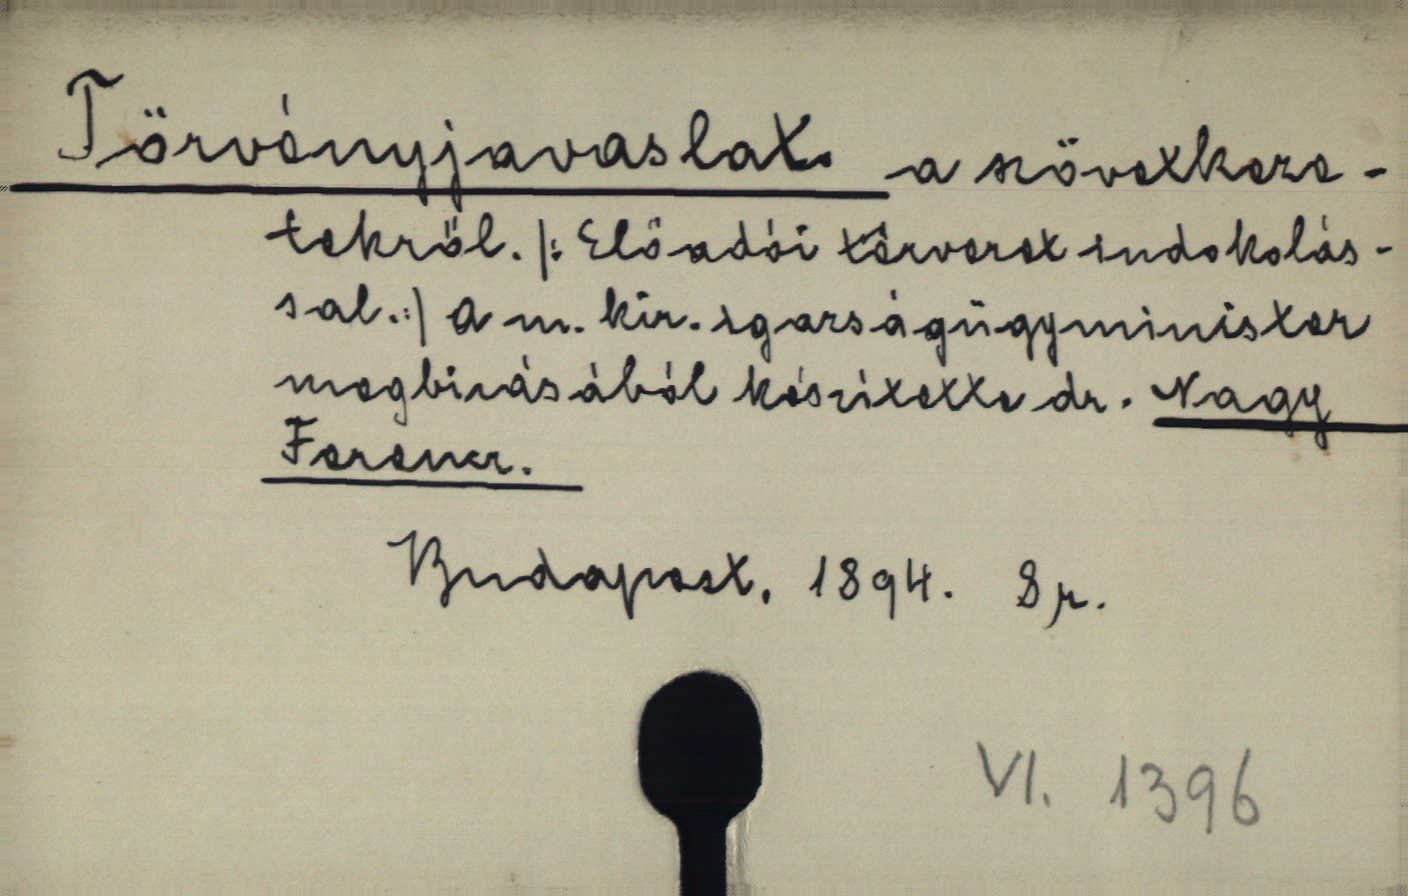 Törvényjavaslat. a szövetkeze-
tekről. /: Előadói tervezet indokolás-
sal. :/ A m. kir. igazságügyminister
megbizásából készitette dr. Nagy
Ferencz.
Budapest, 1894. 8r.
VI. 1396